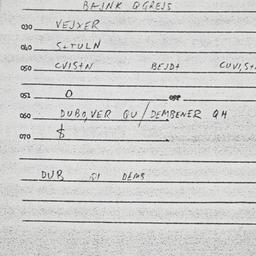 BAJNK QGREJS
030 VEJXER
040 S+TULN
050 CVIS+N BEJD+ CUVI,S+
051 0
060 DUBO,VER GU/DEMBENER QH
070 $
DUB, GI DEMB